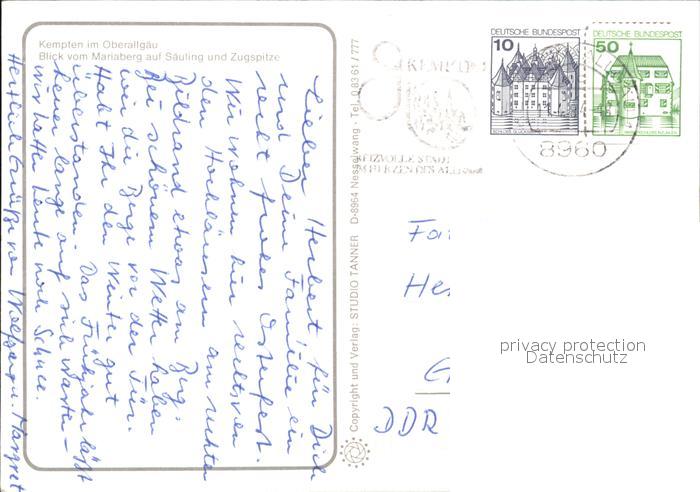 Kempten im Oberallgäu
Blick vom Mariaberg auf Säuling und Zugspitze
Lieber Herbert für Dich
und Deine Familie ein
recht frohes Osterfest.
Wir wohnen hier rechts von
den Hochhäusern am rechten
Bildrand etwas am Berg.
Bei schönem Wetter haben
wir die Berge vor der Tür.
Habt Ihr den Winter gut
überstanden. Das Frühjahr läßt
heuer lange auf sich warten -
wir hatten heute noch Schnee.
Herzlich Grüße von Wolfgang u. Margret
Copyright und Verlag: STUDIO TANNER D-8964 Nesselwang · Tel. 0 83 61 / 777
KEMPTEN
REIZVOLLE STADT
IM HERZEN DES ALLGÄUS
8960
DEUTSCHE BUNDESPOST
10
DEUTSCHE BUNDESPOST
50
Fa
He
G
DDR
privacy protection
Datenschutz